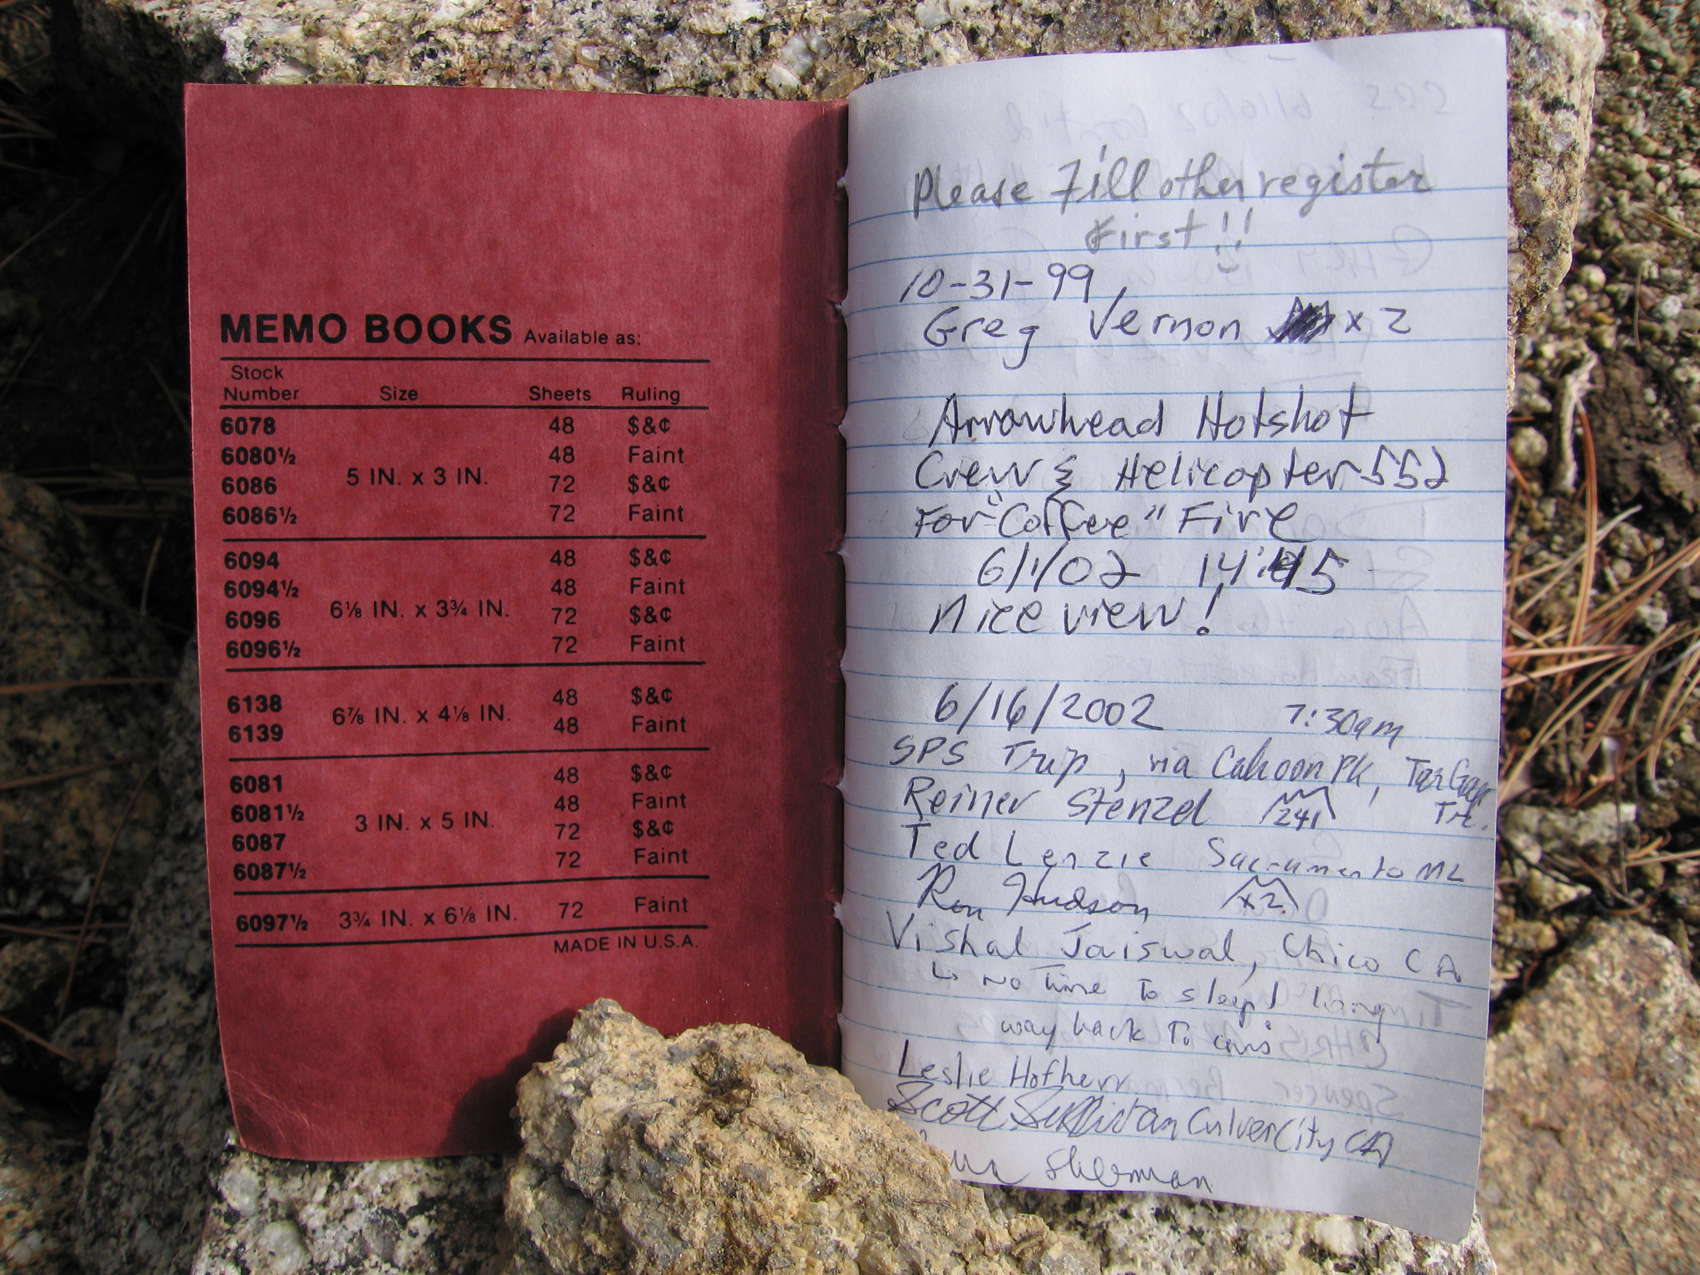 MEMO BOOKS Available as:
Stock
Number Size Sheets Ruling
6078 48 $&¢
6080½ 48 Faint
5 IN. x 3 IN.
6086 72 $&¢
6086½ 72 Faint
6094 48 $&¢
6094½ 48 Faint
6⅛ IN. x 3¾ IN.
6096 72 $&¢
6096½ 72 Faint
6138 48 $&¢
6⅞ IN. x 4⅛ IN.
6139 48 Faint
6081 48 $&¢
6081½ 48 Faint
3 IN. x 5 IN.
6087 72 $&¢
6087½ 72 Faint
6097½ 3¾ IN. x 6⅛ IN. 72 Faint
MADE IN U.S.A.
Please Fill other register
First!!
10-31-99
Greg Vernon x 2
Arrowhead Hotshot
Crew & Helicopter 552
For "Coffee" Fire
6/1/02 14:45
Nice view!
6/16/2002 7:30am
SPS Trip, via Cahoon Pk, Tar Gap
Tr.
Reiner Stenzel 241
Ted Lenzie Sacramento ML
Ron Hudson x2
Vishal Jaiswal, Chico CA
↳ No Time To sleep! long
way back To cars
Leslie Hofherr
Scott Sullivan Culver City CA
Sherman